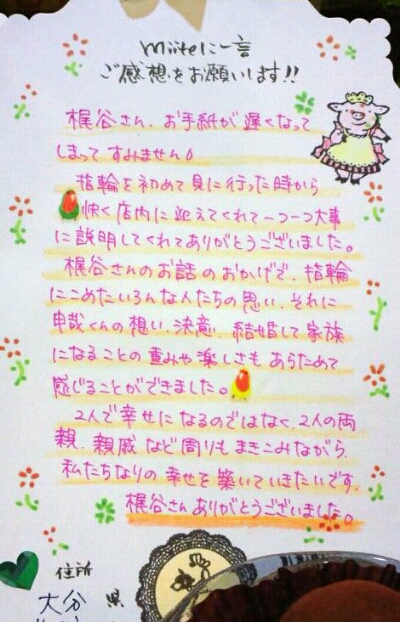 miiteに一言
ご感想をお願いします!!
梶谷さん、お手紙が遅くなって
しまってすみません♪
指輪を初めて見に行った時から
快く店内に迎えてくれて一つ一つ大事
に説明してくれてありがとうございました。
梶谷さんのお話のおかげで、指輪
にこめたいろんな人たちの思い、それに
申哉くんの想い、決意、結婚して家族
になることの重みや楽しさもあらためて
感じることができました。
2人で幸せになるのではなく、2人の両
親、親戚など周りもまきこみながら、
私たちなりの幸せを築いていきたいです。
梶谷さんありがとうございました。
住所
大分 県